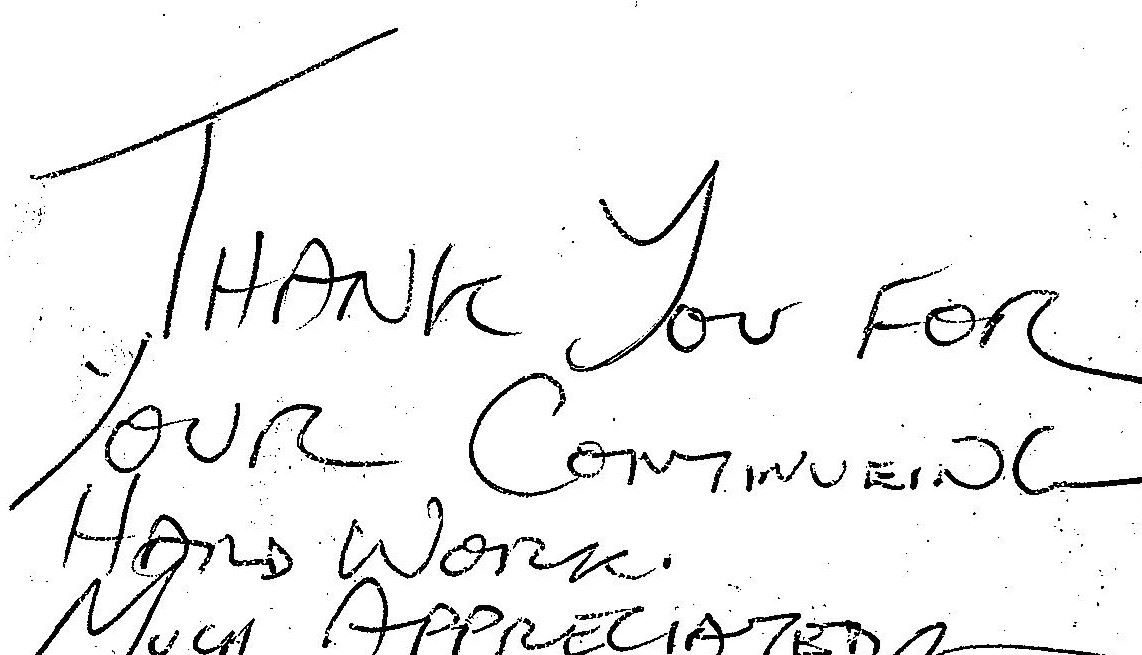 THANK YOU FOR
YOUR CONTINUEING
HARD WORK.
MUCH APPRECIATED